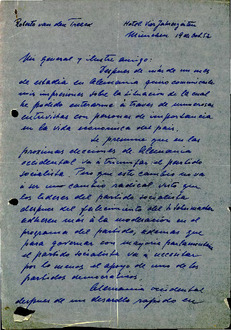 Roberto van den Troeck Hotel Vier Jahreszeiten
München 19 Oct. 52
Mi general y ilustre amigo:
Después de más de un mes
de estadia en Alemania quiero comunicarle
mis impresiones sobre la situación de la cual
he podido enterarme á traves de numerosas
entrevistas con personas de importancia
en la vida económica del país.
Se presume que en las
proximas elecciones de Alemania
occidental va á triunfar el partido
socialista. Pero que este cambio no va
á ser uno cambio radical visto que
los lideres del partido socialista
despues del fallecimiento del
adhieren más á la moderación en el
programa del partido, además que
para governar con mayoria parlamentaria
el partido socialista va á necesitar
por lo menos el apoyo de uno de los
partidos democraticos.
Alemania occidental
despues de un desarollo rapido en